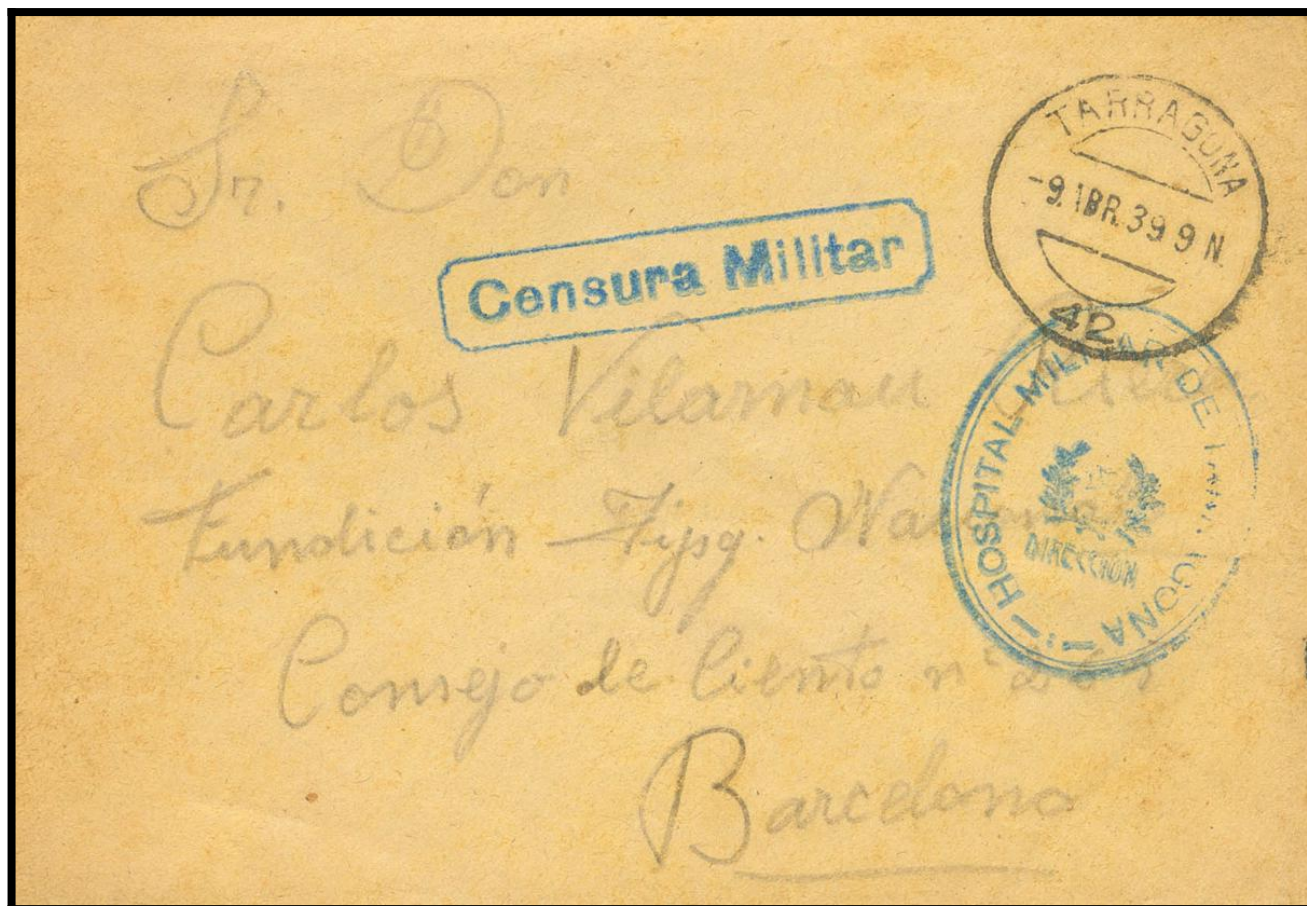 Sr. Don
Censura Militar
TARRAGONA
-9.ABR.39 9 N.
42
Carlos Vilarnau
HOSPITAL MILITAR DE TARRAGONA
DIRECCIÓN
Fundición Tipog. Nacional
Consejo de Ciento nº
Barcelona